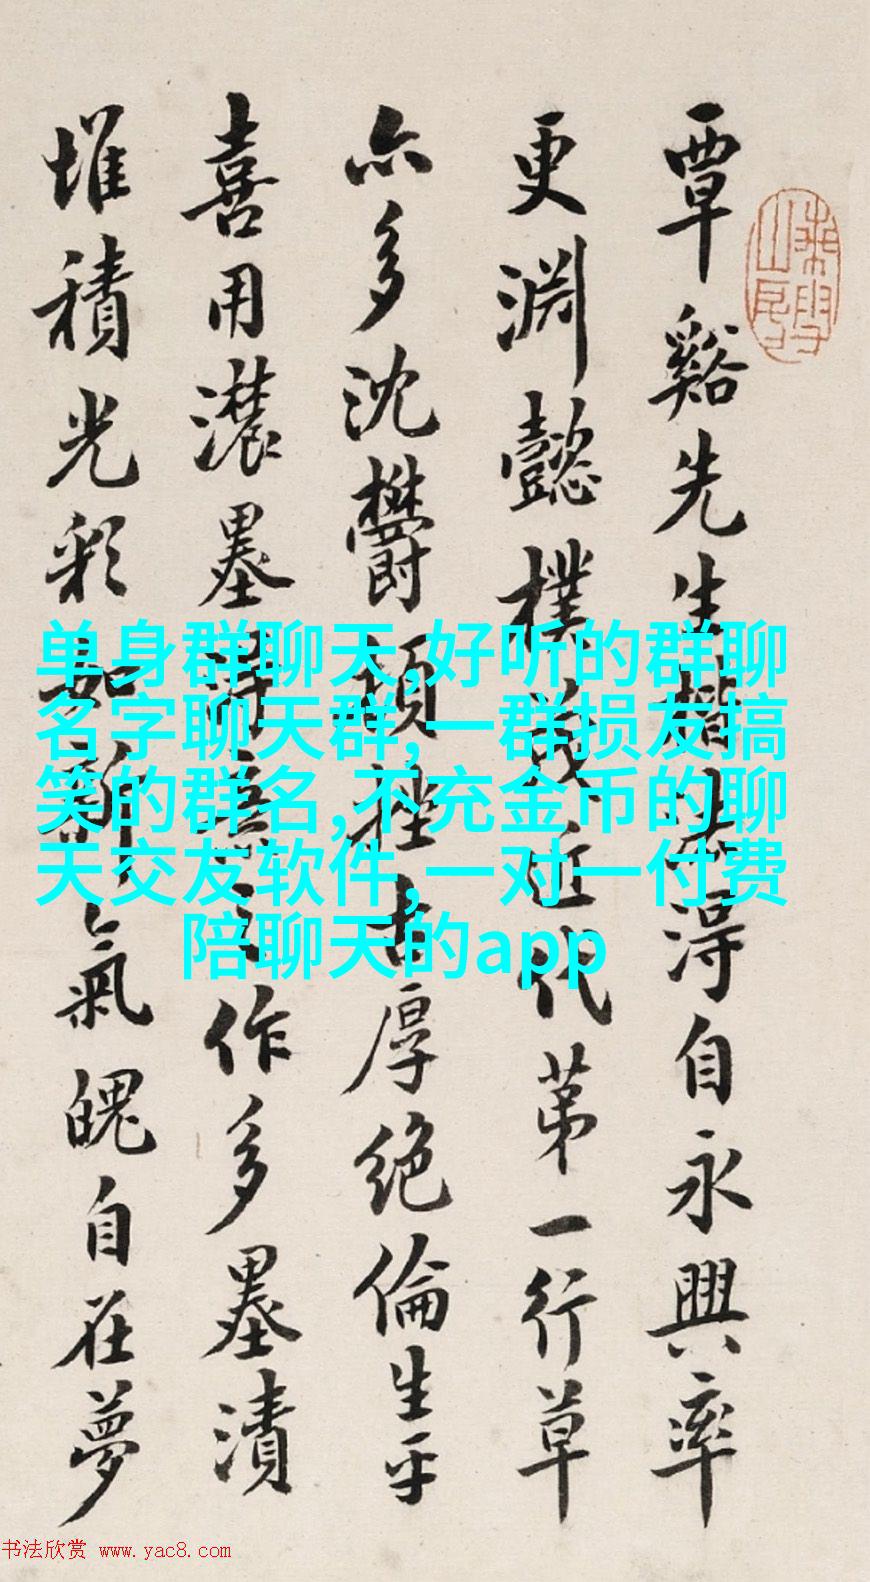 覃谿先生楷法得自永興率
更淵懿樸茂近代第一行草
亦多沈鬱頓挫古厚絕倫生平
喜用濃墨得意之作多墨漬
堆積光彩如新氣魄自在夢
单身群聊天,好听的群聊
名字聊天群,一群损友搞
笑的群名,不充金币的聊
天交友软件,一对一付费
陪聊天的app
书法欣赏 www.yac8.com